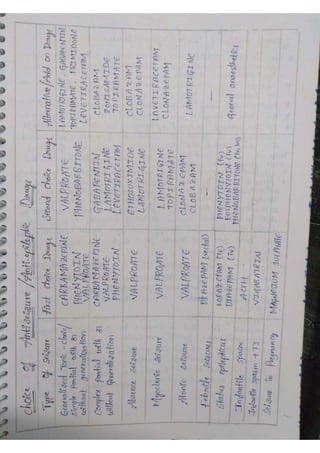 Choice of Antiseizure / Anti-epileptic Drugs
Type of Seizure | First choice Drugs | Second choice Drugs | Alternative/Add on Drugs
Generalized Tonic-clonic/ | CARBAMAZEPINE | VALPROATE | LAMOTRIGINE, GABAPENTIN
simple Partial with or | PHENYTOIN | PHENOBARBITONE | TOPIRAMATE, PRIMIDONE
without generalization | VALPROATE | | LEVETIRACETAM
Complex partial with or | CARBAMAZEPINE | GABAPENTIN | CLOBAZAM
without Generalization | VALPROATE | LAMOTRIGINE | ZONISAMIDE
PHENYTOIN | LEVETIRACETAM | TOPIRAMATE
Absence Seizure | VALPROATE | ETHOSUXIMIDE | CLOBAZAM
LAMOTRIGINE | CLONAZEPAM
Myoclonic Seizure | VALPROATE | LAMOTRIGINE | LEVETIRACETAM
TOPIRAMATE | CLONAZEPAM
Atonic Seizure | VALPROATE | CLONAZEPAM | LAMOTRIGINE
CLOBAZAM
Febrile Seizures | DIAZEPAM (rectal) | — | —
Status epilepticus | LORAZEPAM (IV) | PHENYTOIN (IV) | General anaesthetics
DIAZEPAM (IV) | FOSPHENYTOIN (IV)
PHENOBARBITONE (IV, IM)
Infantile spasm | ACTH
Infantile spasm + TS | VIGABATRIN
Seizure in Pregnancy | MAGNESIUM SULPHATE